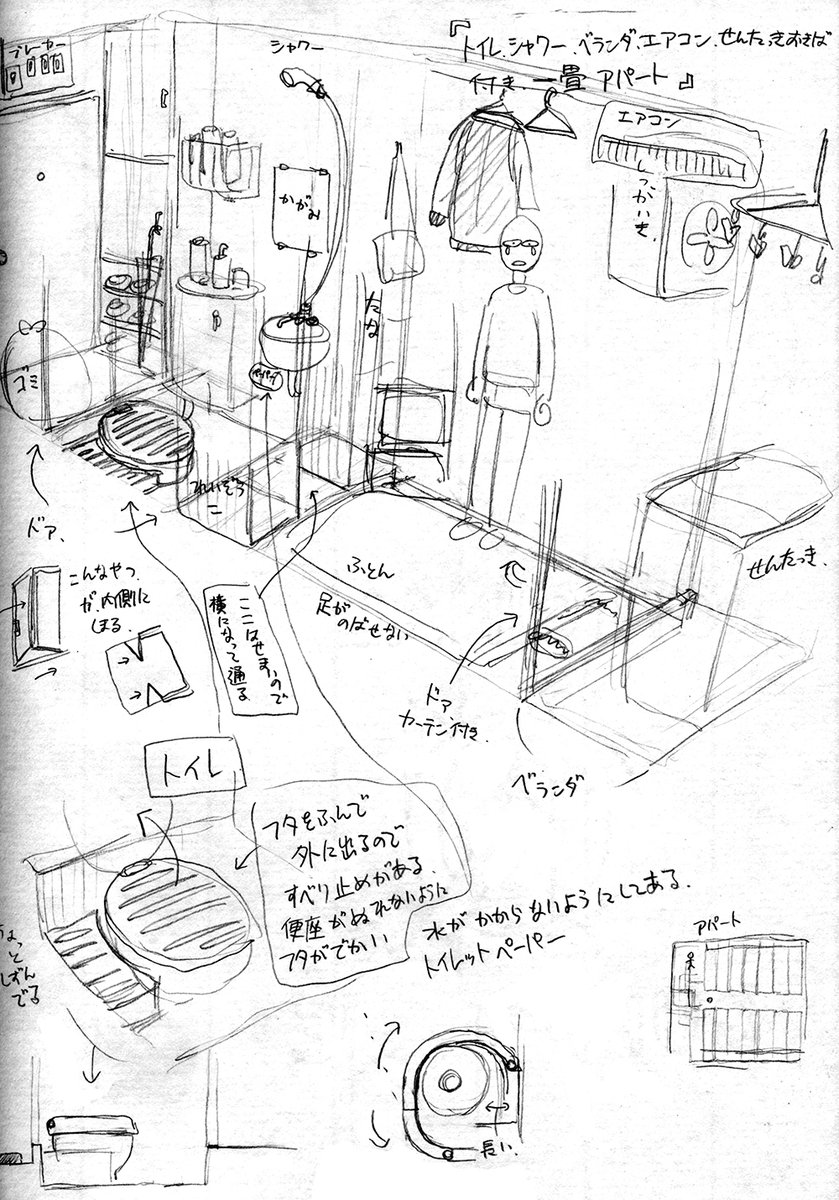 『トイレ、シャワー、ベランダ、エアコン、せんたっきおきば
付き、一畳アパート』
ブレーカー
シャワー
エアコン
しつがいき
かがみ
たな
ペーパー
ゴミ
れいぞう
こ
ドア、
こんなやつ
が、内側に
ほる、
ここはせまいので
横になって通る
ふとん
足が
のばせない
せんたっき、
ドア
カーテン付き、
ベランダ
トイレ
フタをふんで
外に出るので
すべり止めがある、
便座がぬれないように
フタがでかい
水がかからないようにしてある、
トイレットペーパー
アパート
ちょっと
しずん
でる
長い、